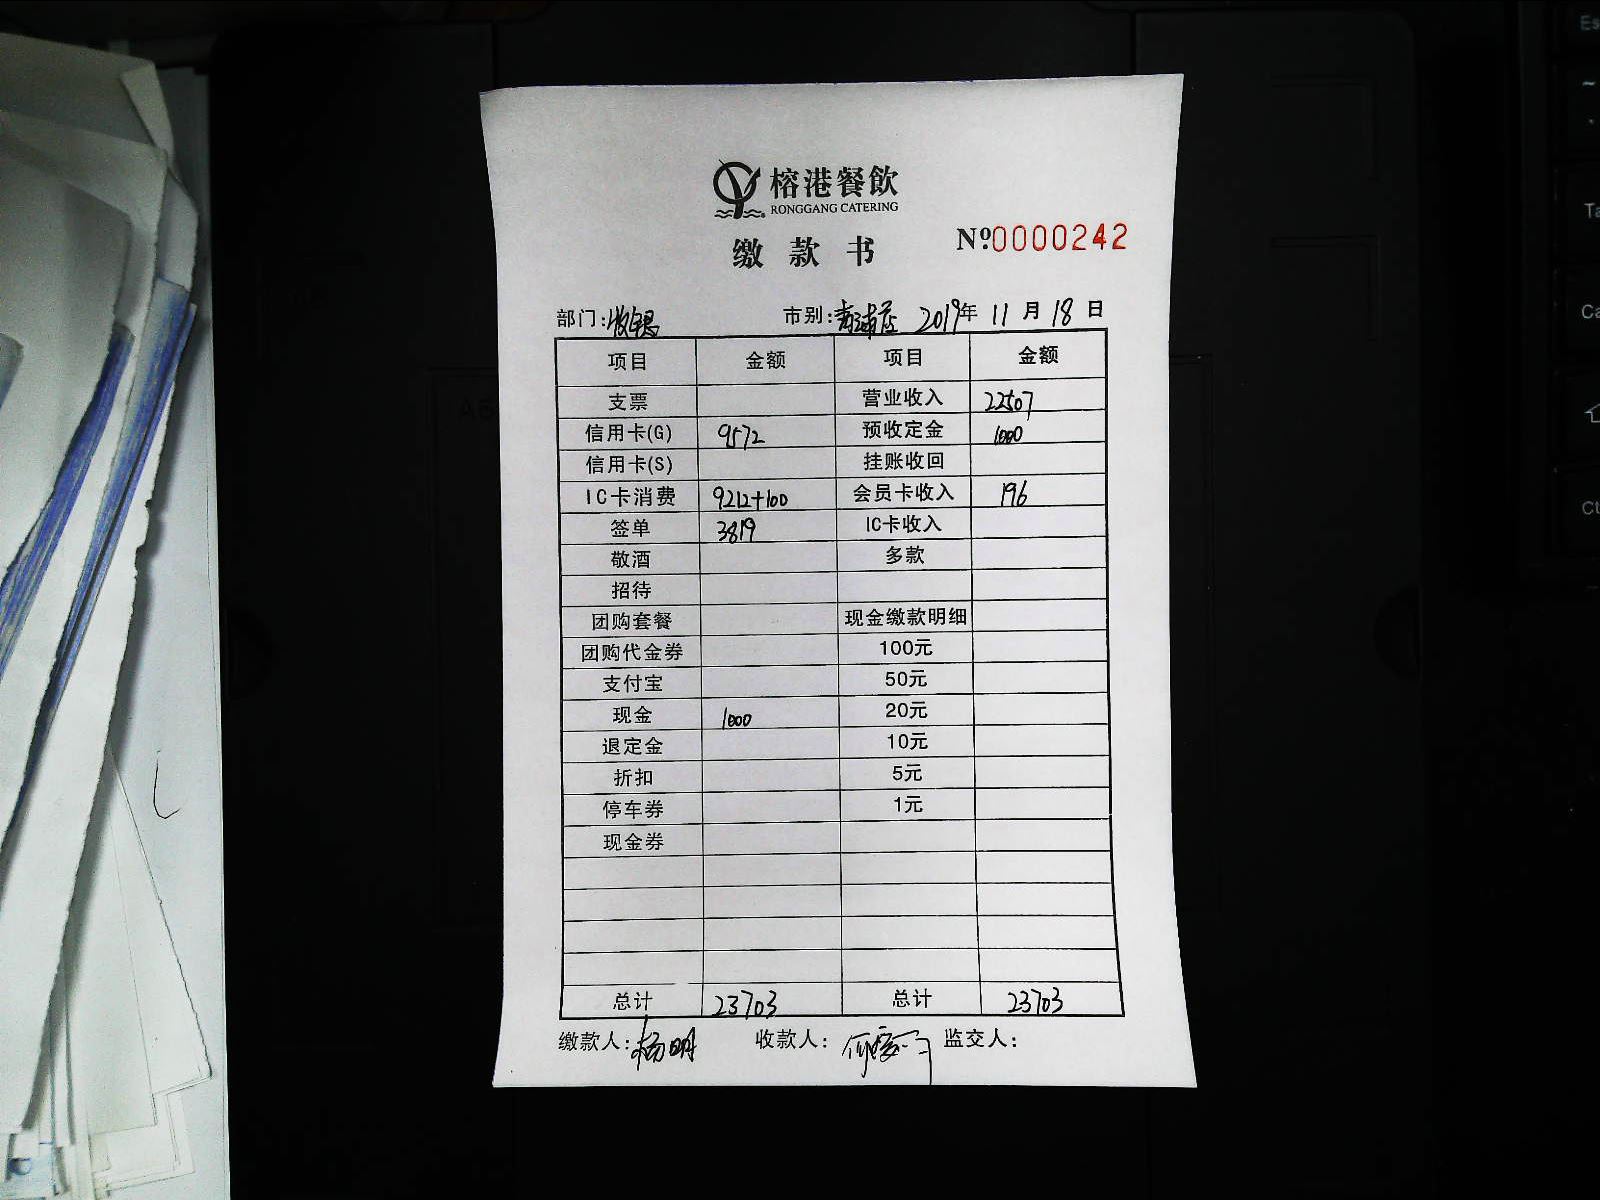 榕港餐飲
RONGGANG CATERING
缴款书 Nº0000242
部门:收银 市别:青浦店 2019年11月18日
项目 金额 项目 金额
支票 营业收入 22507
信用卡(G) 9572 预收定金 1000
信用卡(S) 挂账收回
IC卡消费 9212+100 会员卡收入 196
签单 3819 IC卡收入
敬酒 多款
招待
团购套餐 现金缴款明细
团购代金券 100元
支付宝 50元
现金 1000 20元
退定金 10元
折扣 5元
停车券 1元
现金券
总计 23703 总计 23703
缴款人:杨明 收款人: 监交人: